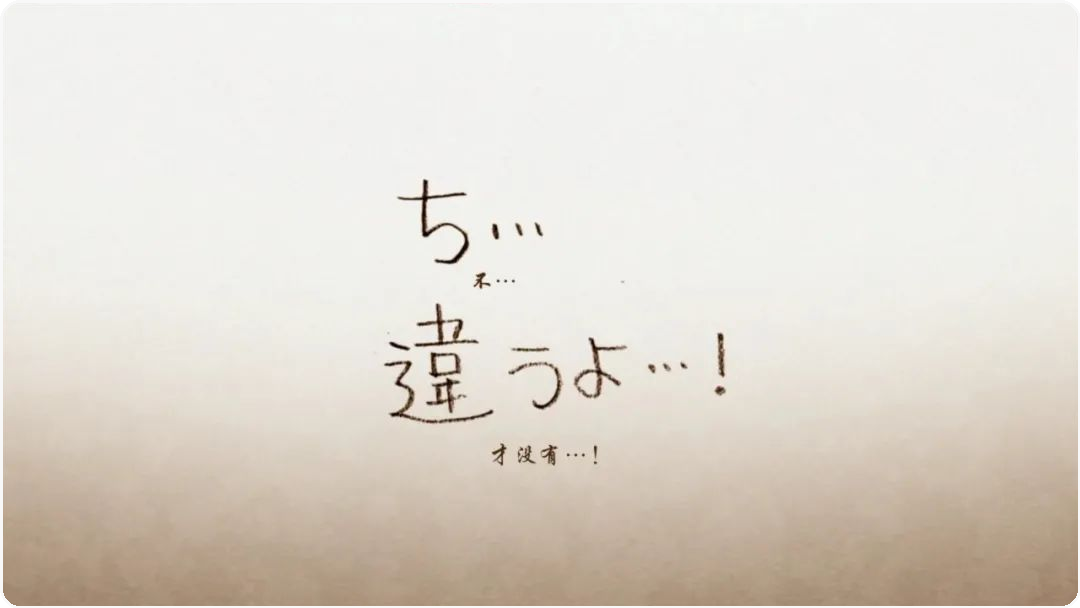 ち…
不…
違うよ…!
才没有…!